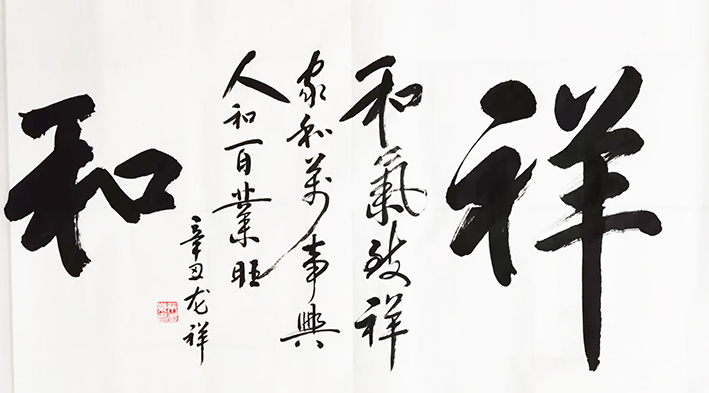 祥
和氣致祥
家和萬事興
人和百業旺
辛丑龙祥
和